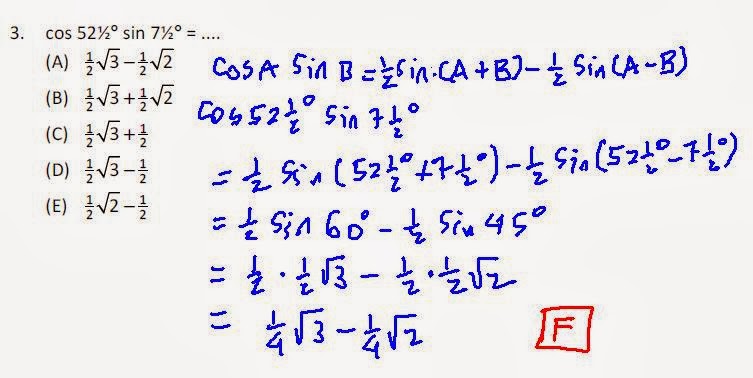 3. cos 52½° sin 7½° = ....
(A) ½√3−½√2
(B) ½√3+½√2
(C) ½√3+½
(D) ½√3−½
(E) ½√2−½
cos A sin B = ½ sin.(A+B) − ½ sin(A−B)
cos 52½° sin 7½°
= ½ sin(52½°+7½°) − ½ sin(52½°−7½°)
= ½ sin 60° − ½ sin 45°
= ½ · ½√3 − ½ · ½√2
= ¼√3 − ¼√2
F